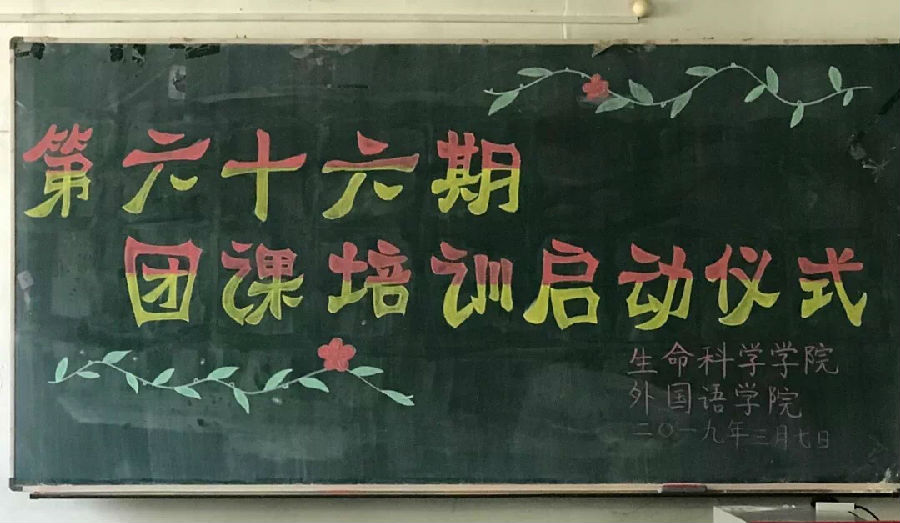 第六十六期
团课培训启动仪式
生命科学学院
外国语学院
二〇一九年三月七日